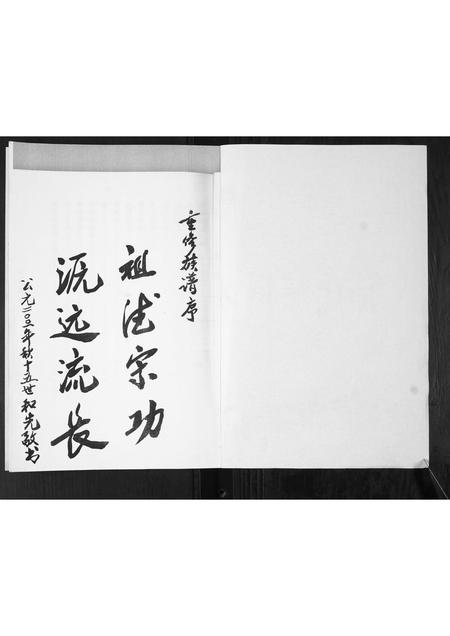 重修族谱序
祖德宗功
源远流长
公元二〇〇三年秋十五世和先敬书